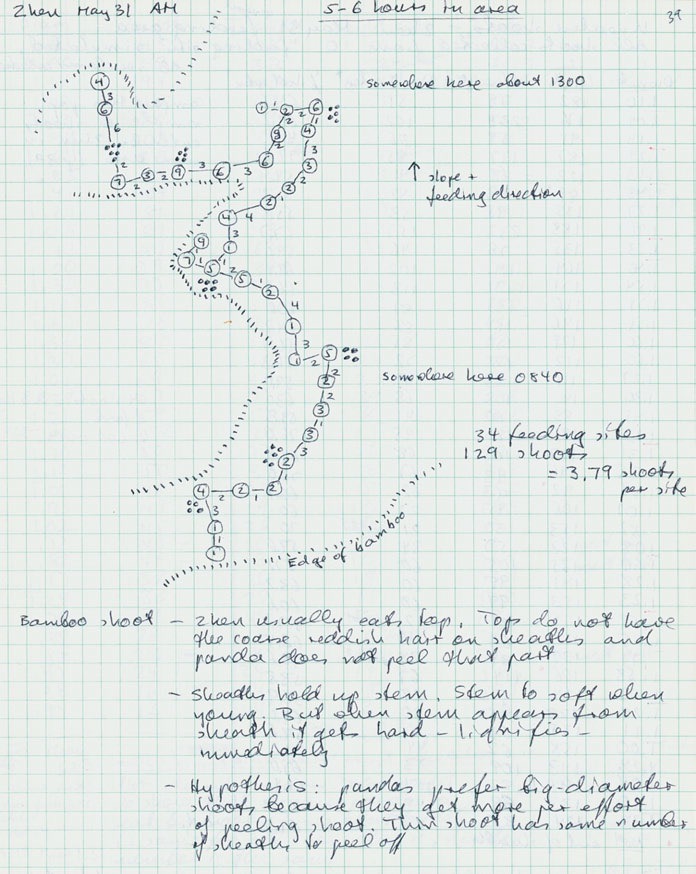 Zhen May 31 AM
5-6 hours in area
39
somewhere here about 1300
4
3
6
6
2
7
2
3
2
9
3
6
3
6
2
9
2
2
1
1
2
6
1
4
3
3
2
2
2
2
4
4
3
1
1
9
1
7
1
5
2
5
1
2
4
1
3
1
2
5
2
2
2
3
1
3
3
2
1
2
1
2
2
4
3
1
1
1
↑ slope +
feeding direction
somewhere here 0840
34 feeding sites
129 shoots
= 3,79 shoots
per site
Edge of bamboo
Bamboo shoot – Zhen usually eats top. Tops do not have
the coarse reddish hair on sheaths and
panda does not peel that part
– Sheaths hold up stem. Stem to soft when
young. But when stem appears from
sheath it gets hard – lignifies –
immediately
– Hypothesis: pandas prefer big-diameter
shoots because they get more per effort
of peeling shoot. Thin shoot has same number
of sheaths to peel off